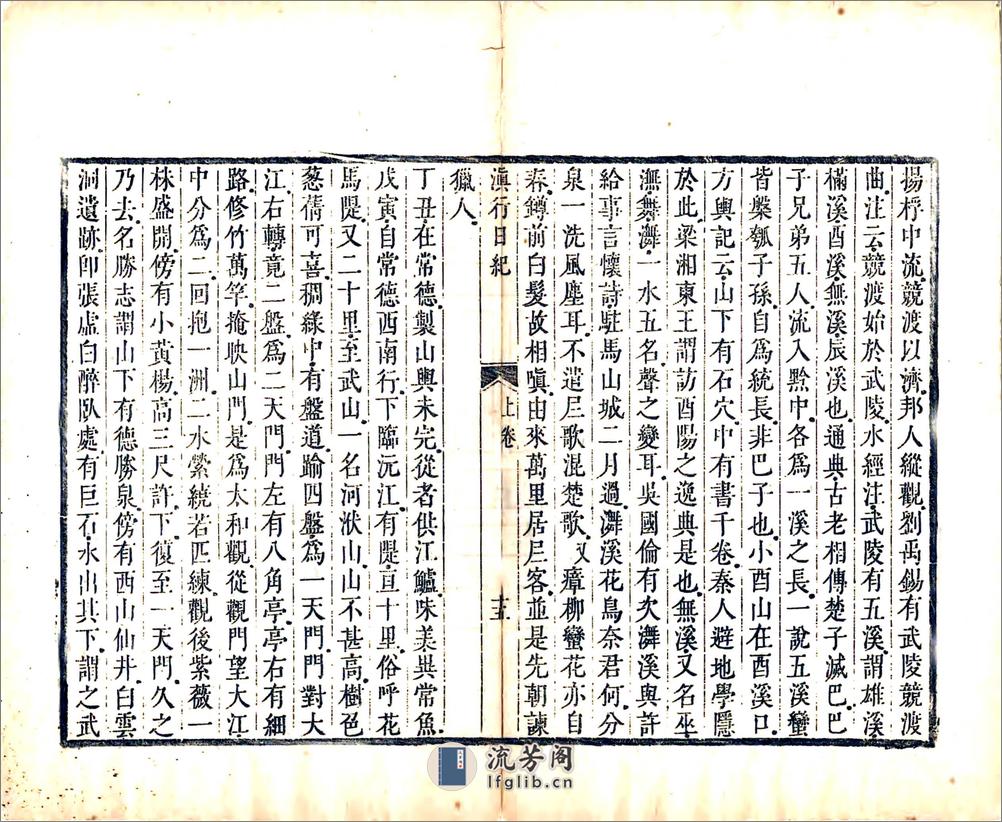 揚桴中流競渡以濟邦人縱觀劉禹錫有武陵競渡
曲注云競渡始於武陵水經注武陵有五溪謂雄溪
樠溪酉溪無溪辰溪也通典古老相傳楚子滅巴巴
子兄弟五人流入黔中各爲一溪之長一說五溪蠻
皆槃瓠子孫自爲統長非巴子也小酉山在酉溪口
方輿記云山下有石穴中有書千卷秦人避地學隱
於此梁湘東王謂訪酉陽之逸典是也無溪又名
潕舞㵲一水五名聲之變耳吳國倫有次㵲溪與許
給事言懷詩駐馬山城二月過㵲溪花鳥奈君何分
泉一洗風塵耳不遣巵歌混楚歌又瘴柳蠻花亦自
春鐏前白髮故相嗔由來萬里居巵客並是先朝諫
滇行日紀
上卷
十五
獵人
丁丑在常德製山輿未完從者供江鱸味美異常魚
戊寅自常德西南行下臨沅江有隄亘十里俗呼花
馬隄又二十里至武山一名河洑山山不甚高樹色
葱蒨可喜稠綠中有盤道踰四盤爲一天門門對大
江右轉竟二盤爲二天門門左有八角亭亭右有細
路修竹萬竿掩映山門是爲太和觀從觀門望大江
中分爲二回抱一洲二水縈繞若匹練觀後紫薇一
株盛開傍有小黃楊高三尺許下復至一天門久之
乃去名勝志謂山下有德勝泉傍有西山仙井白雲
洞遺跡卽張虛白醉臥處有巨石水出其下謂之武
流芳阁
lfglib.cn